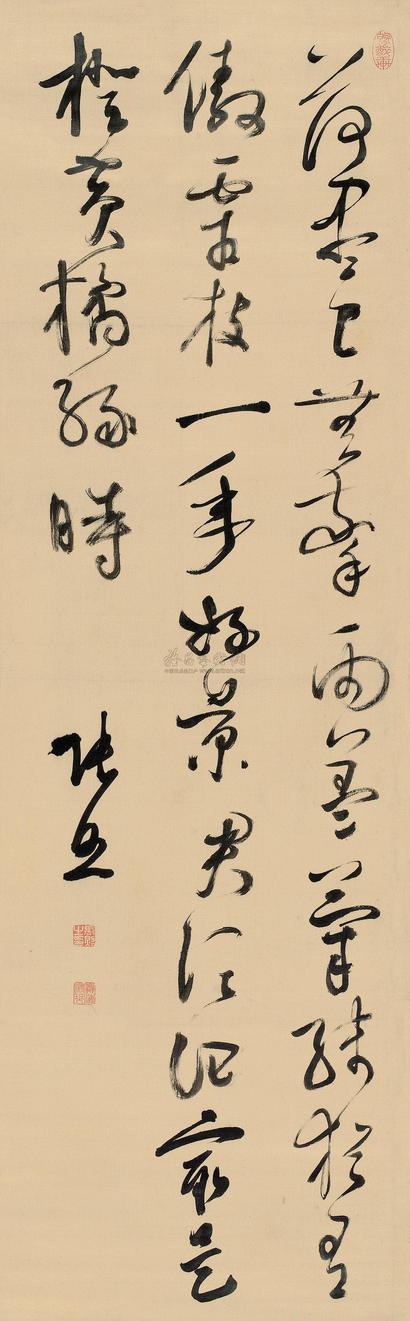 荷盡已無擎雨蓋菊殘猶有
傲霜枝一年好景君須記最是
橙黃橘綠時
張照